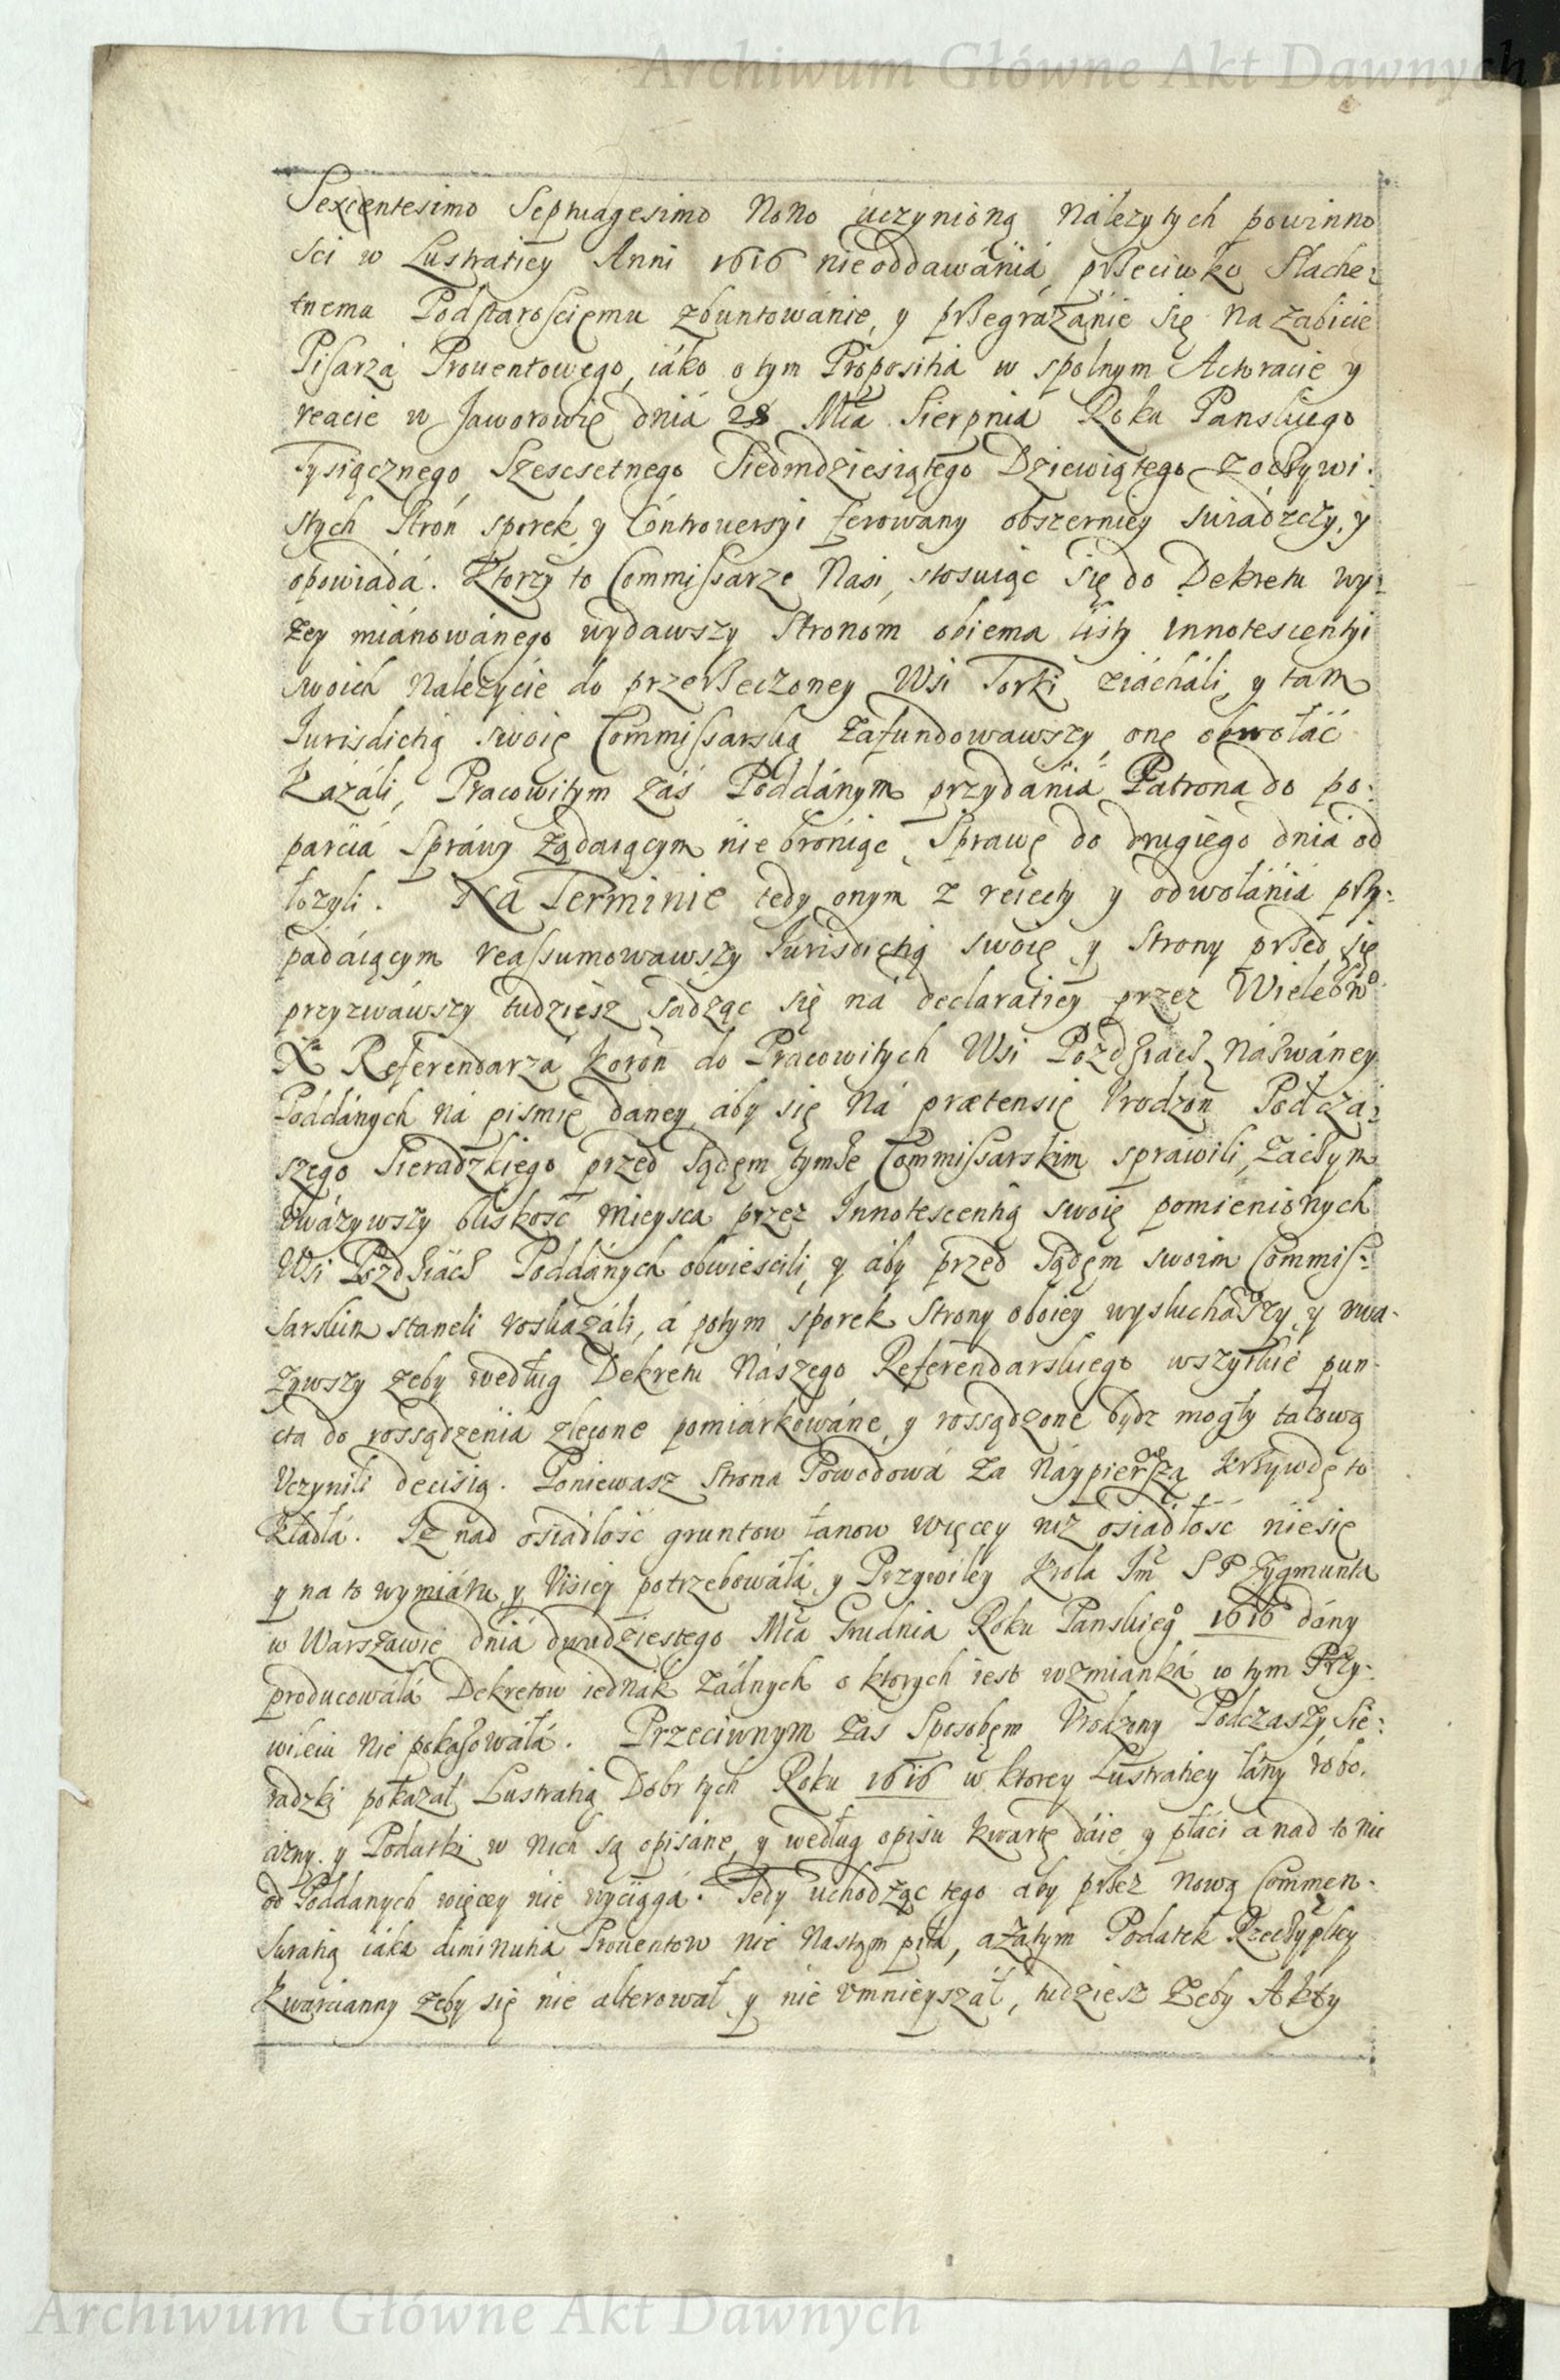 Archiwum Główne Akt Dawnych
Sexcentesimo Septuagesimo Nono uczynioną należytych powinno
sci w Lustratiey Anni 1616 nieoddawánia, przeciwko Slache,
tnemu Podstarosciemu zbuntowánie, y przegrażánie się na zabicie
Pisarzá Prouentowego, iáko o tym Propositia w spolnym Actoracie y
reacie w Jaworowie dniá 28 Mca Sierpnia Roku Panskiego
Tysiącznego Szescsetnego Siedmdziesiątego Dziewiątego z oczywi:
stych Stron sporek y Controuersyi ferowany obszerniey swiádczy, y
opowiádá. Ktorzy to Commissarze Nasi, stosuiąc się do Dekretu wy:
żey miánowánego wydawszy Stronom obiema listy Innotescentyi
swoich należycie do przerzeczoney Wsi Torki ziácháli, y tam
Jurisdictią swoię Commissarską zafundowawszy, onę obwołáć
kazáli, Pracowitym zás Poddánym przydánia Patrona do po:
parcia spráwy żądaiącym nie broniąc, Sprawę do drugiego dniá od
łożyli. Na Terminie tedy onym z reiecty y odwołánia przy:
pádáiącym reassumowawszy Jurisdictią swoię y Strony przed się
przyzwáwszy tudziesz sádząc się ná declaratiey przez Wielebno
Xa Referendarzá Koron do Pracowitych Wsi Pozdziacz názwáney
Poddánych ná pismie daney, aby się ná prætensię Vrodzon Podcza:
szego Sieradzkiego przed Sądem tymże Commissarskim spráwili, zaczym
vważywszy bliskość mieysca przez Innotescentią swoię pomienionych
Wsi Pozdziácz Poddánych obwiescili, y áby przed Sądem swoim Commis:
sarskim staneli roskazáli, á potym sporek Strony oboiey wysłuchawszy, y vwa-
żywszy żeby według Dekretu Nászego Referendarskiego wszytkie pun-
cta do rossądzenia zlecone pomiárkowáne, y rossądzone bydz mogły takową
Vczynili decisią. Poniewasz Strona Powodowá za náypierwszą krzywdę to
kładłá. Iż nad osiádłość gruntow łanow więcey niż osiadłość niesie
y na to wymiáru, y Visiey potrzebowáłá, y Przywiley Krola Jm S P Zygmunta
w Warszawie dniá dwudziestego Mca Grudnia Roku Panskiego 1616 dány
producowáłá Dekretow iednak żádnych o ktorych iest wzmianká w tym Przy:
wileiu nie pokazowáłá. Przeciwnym zas sposobem Vrodzony Podczaszy Sie:
radzki pokazał Lustratią Dobr tych Roku 1616 w ktorey Lustratiey łány robo.
cizny y Podatki w nich są opisáne, y według opisu kwartę dáie y płáci a nad to nic
od Poddanych więcey nie wyciągá. Tedy uchodząc tego aby przez nową Commen-
suratią iáka diminutia Prouentow nie nastąmpiłá, a zátym Podatek Rzeczyplitey
kwarcianny żeby się nie alterował y nie vmnieyszáł, tudziesz żeby Akty
Archiwum Główne Akt Dawnych